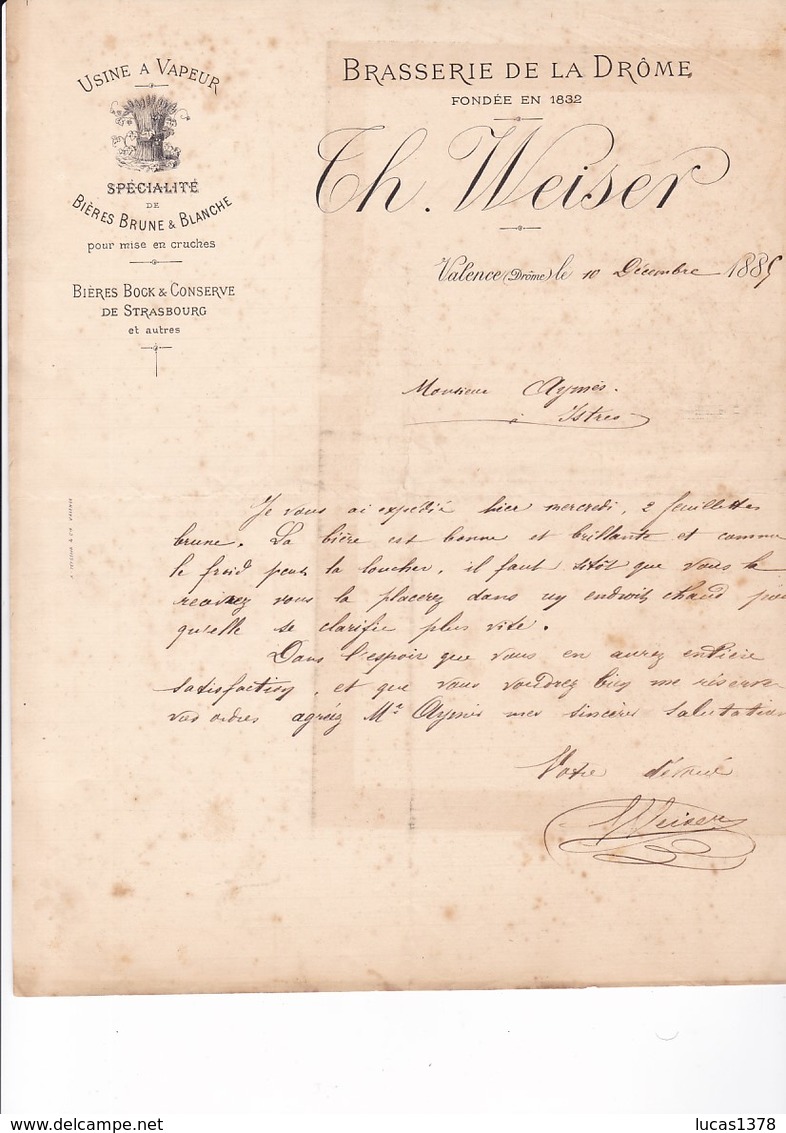 USINE A VAPEUR
SPÉCIALITÉ
DE
BIÈRES BRUNE & BLANCHE
pour mise en cruches
BIÈRES BOCK & CONSERVE
DE STRASBOURG
et autres
BRASSERIE DE LA DRÔME
FONDÉE EN 1832
Th. Weiser
Valence (Drôme) le 10 Décembre 1885
Monsieur Aymes.
à Istres
Je vous ai expédié hier mercredi, 2 feuillettes
brune. La bière est bonne et brillante et comme
le froid peut la loucher, il faut sitôt que vous la
recevrez vous la placerez dans un endroit chaud pour
qu'elle se clarifie plus vite.
Dans l'espoir que vous en aurez entière
satisfaction, et que vous voudrez bien me réserver
vos ordres agréez Mr Aymes mes sincères salutations
Votre dévoué
Weiser
delcampe.net
lucas1378